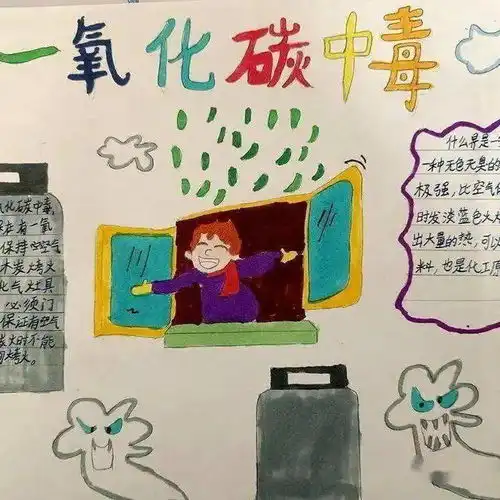 一氧化碳中毒
氧化碳中毒,
有一氧
保持空气
木炭烤火
化气灶具
必须门
保证有空气
炭火时不能
烤火。
什么是一
一种无色无臭的
极强,比空气
时发淡蓝色火
出大量的热,可以
料,也是化工原